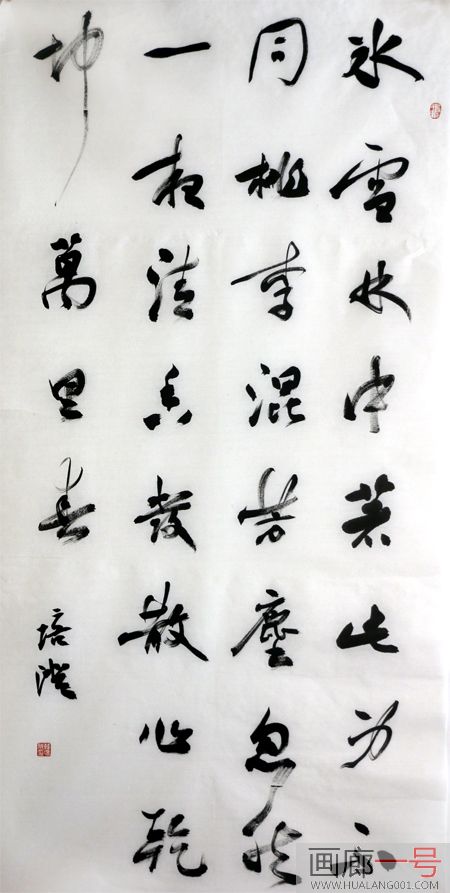 冰雪林中著此身不
同桃李混芳塵忽然
一夜清香發散作乾
坤萬里春
培澄
画廊一号
WWW.HUALANG001.COM